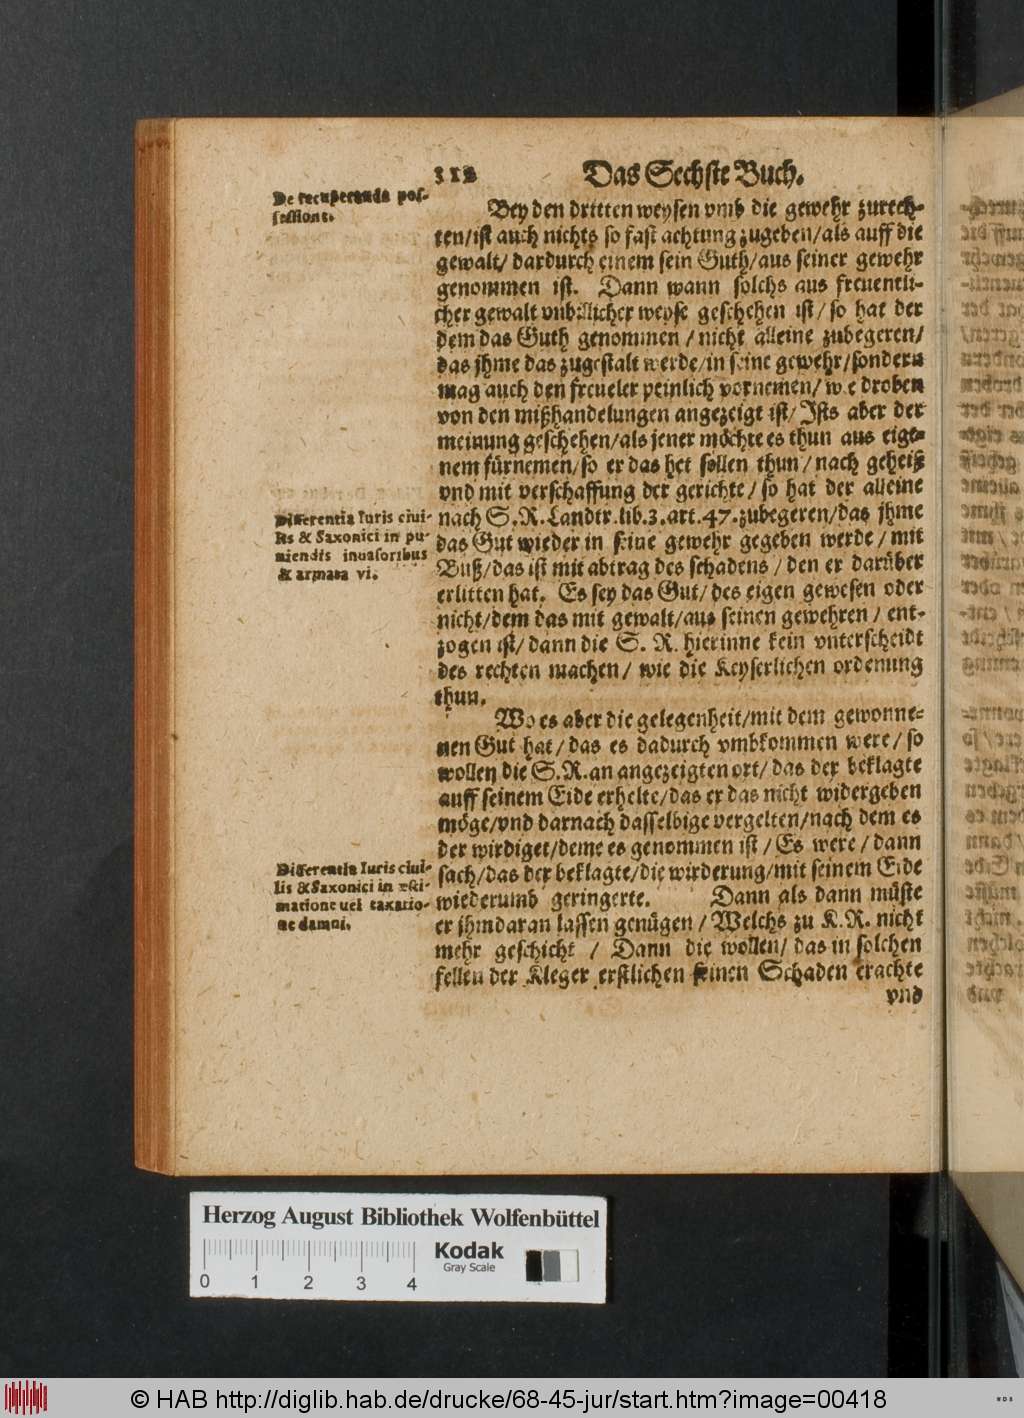 312 Das Sechste Buch.
De recuperanda pos-
sessione.
Bey den dritten weysen vmb die gewehr zurech-
ten/ist auch nichts so fast achtung zugeben/als auff die
gewalt/ dardurch einem sein Guth/aus seiner gewehr
genommen ist. Dann wann solchs aus freuentli-
cher gewalt vnbillicher weyse geschehen ist/ so hat der
dem das Guth genommen / nicht alleine zubegeren/
das jhme das zugestalt werde/in seine gewehr/sondern
mag auch den freueler peinlich vornemen/ wie droben
von den mißhandelungen angezeigt ist/ Ists aber der
meinung geschehen/als jener möchte es thun aus eige-
nem fürnemen/so er das het sollen thun/ nach geheiß
vnd mit verschaffung der gerichte/ so hat der alleine
Differentia Iuris ciui-
lis & Saxonici in pu-
niendis inuasoribus
& armata vi.
nach S.R.Landtr.lib.3.art.47.zubegeren/das jhme
das Gut wieder in seine gewehr gegeben werde/ mit
Buß/das ist mit abtrag des schadens / den er darüber
erlitten hat. Es sey das Gut/ des eigen gewesen oder
nicht/dem das mit gewalt/aus seinen gewehren / ent-
zogen ist/ dann die S. R. hierinne kein vnterscheidt
des rechten machen/ wie die Keyserlichen ordenung
thun.
Wo es aber die gelegenheit/mit dem gewonne-
nen Gut hat/ das es dadurch vmbkommen were/ so
wollen die S.R.an angezeigten ort/ das der beklagte
auff seinem Eide erhelte/das er das nicht widergeben
möge/vnd darnach dasselbige vergelten/nach dem es
der wirdiget/deme es genommen ist / Es were/ dann
Differentia Iuris ciui-
lis & Saxonici in æsti-
matione uel taxatio-
ne damni.
sach/das der beklagte/die wirderung/mit seinem Eide
wiederumb geringerte. Dann als dann müste
er jhm daran lassen genügen / Welchs zu K.R. nicht
mehr geschicht / Dann die wollen/ das in solchen
fellen der Kleger erstlichen seinen Schaden erachte
vnd
Herzog August Bibliothek Wolfenbüttel
Kodak
Gray Scale
0 1 2 3 4
© HAB http://diglib.hab.de/drucke/68-45-jur/start.htm?image=00418